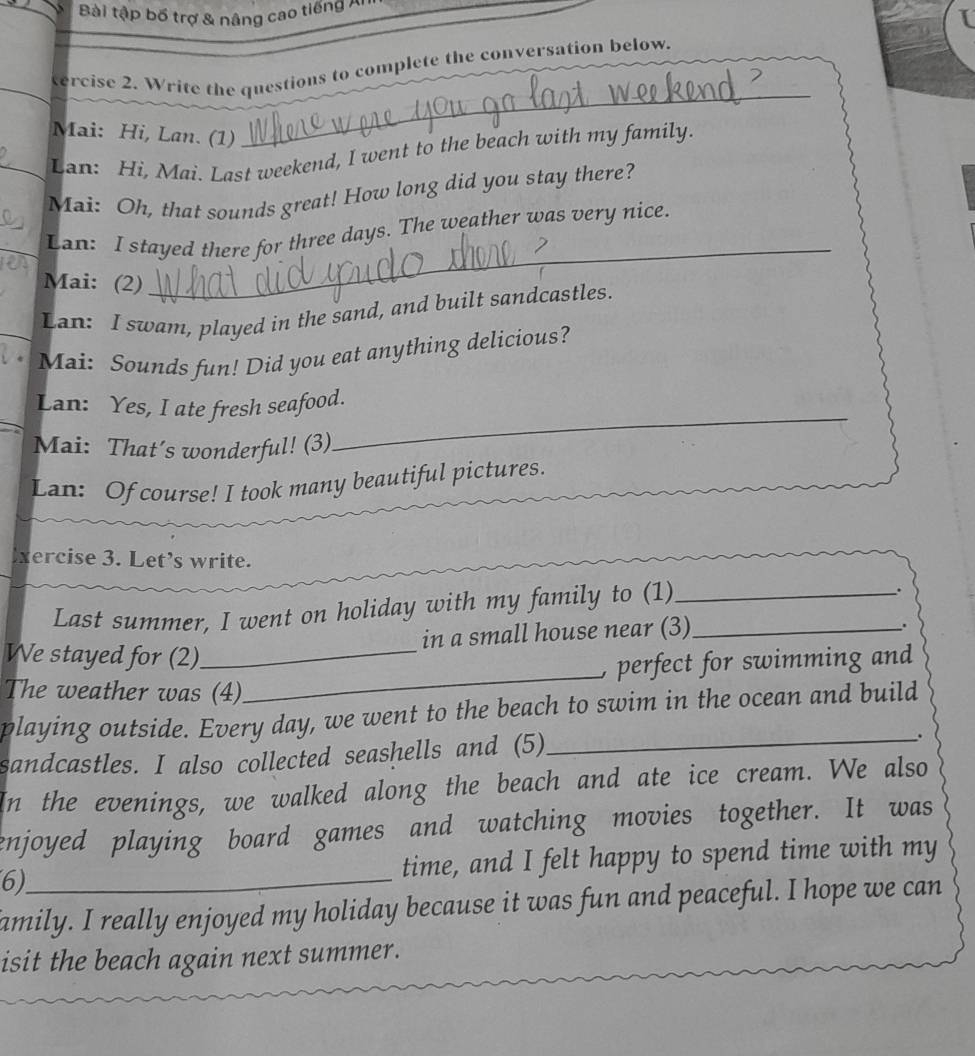 Bài tập bổ trợ & nâng cao tiếng
xercise 2. Write the questions to complete the conversation below.
Mai: Hi, Lan. (1) Where were you go last weekend?
Lan: Hi, Mai. Last weekend, I went to the beach with my family.
Mai: Oh, that sounds great! How long did you stay there?
Lan: I stayed there for three days. The weather was very nice.
Mai: (2) What did you do there?
Lan: I swam, played in the sand, and built sandcastles.
Mai: Sounds fun! Did you eat anything delicious?
Lan: Yes, I ate fresh seafood.
Mai: That's wonderful! (3)
Lan: Of course! I took many beautiful pictures.
xercise 3. Let's write.
Last summer, I went on holiday with my family to (1)_____.
We stayed for (2)_____ in a small house near (3)_____.
The weather was (4)_____, perfect for swimming and
playing outside. Every day, we went to the beach to swim in the ocean and build
sandcastles. I also collected seashells and (5)_____.
In the evenings, we walked along the beach and ate ice cream. We also
enjoyed playing board games and watching movies together. It was
6)_____ time, and I felt happy to spend time with my
amily. I really enjoyed my holiday because it was fun and peaceful. I hope we can
isit the beach again next summer.